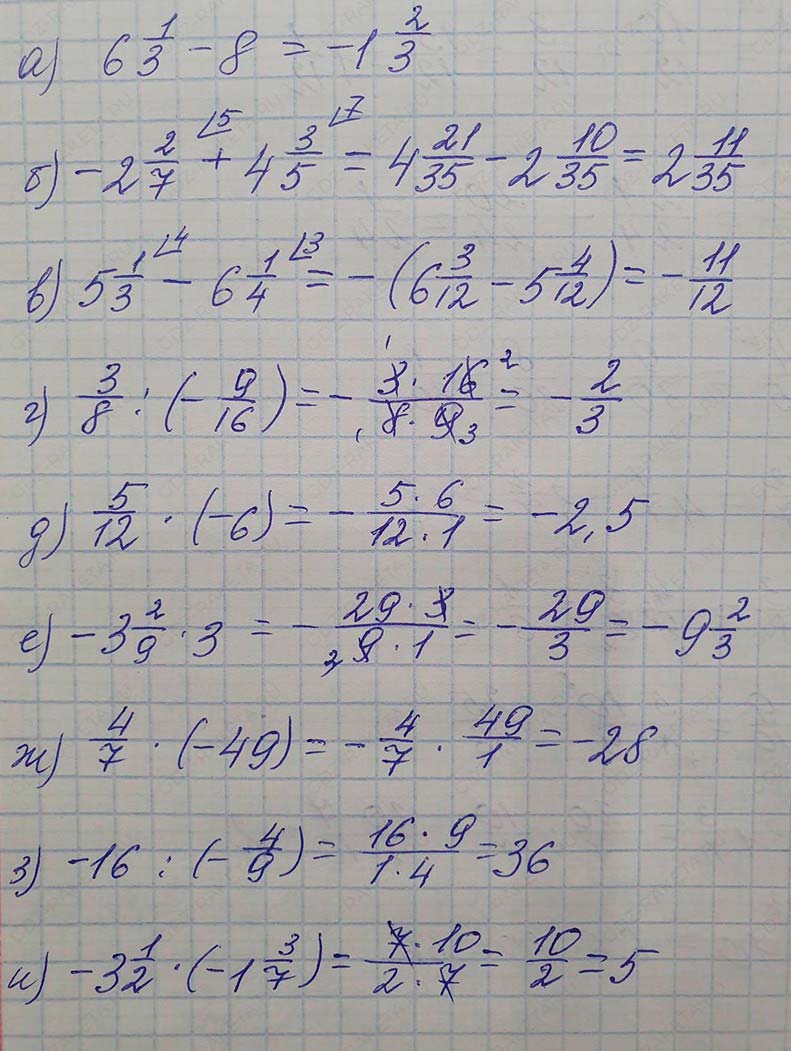 а) 6 1/3 - 8 = -1 2/3
б) -2 2/7 ⌊5 + 4 3/5 ⌊7 = 4 21/35 - 2 10/35 = 2 11/35
в) 5 1/3 ⌊4 - 6 1/4 ⌊3 = -(6 3/12 - 5 4/12) = - 11/12
г) 3/8 : (- 9/16) = - 3 1 · 16 2 / 8 1 · 9 3 = - 2/3
д) 5/12 · (-6) = - 5 · 6 / 12 · 1 = -2,5
е) -3 2/9 · 3 = - 29 · 3 / 3 9 · 1 = - 29/3 = -9 2/3
ж) 4/7 · (-49) = - 4/7 · 49/1 = -28
з) -16 : (- 4/9) = 16 · 9 / 1 · 4 = 36
и) -3 1/2 · (-1 3/7) = 7 · 10 / 2 · 7 = 10/2 = 5